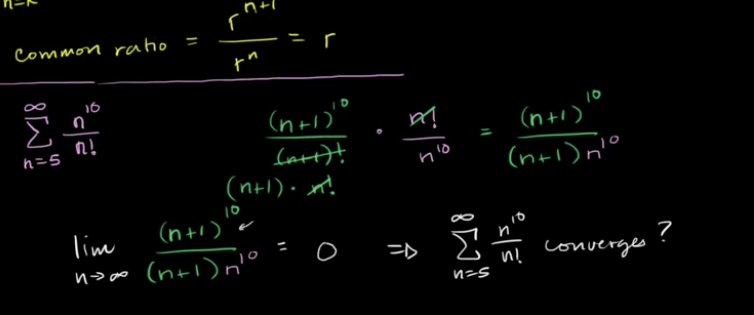 n=k
common ratio = r^{n+1} / r^n = r
∞ Σ n=5 n^{10} / n!   (n+1)^{10} / (n+1)! · n! / n^{10} = (n+1)^{10} / (n+1) n^{10}
(n+1) · n!
lim n→∞ (n+1)^{10} / (n+1) n^{10} = 0 ⇒ ∞ Σ n=5 n^{10} / n! converges?